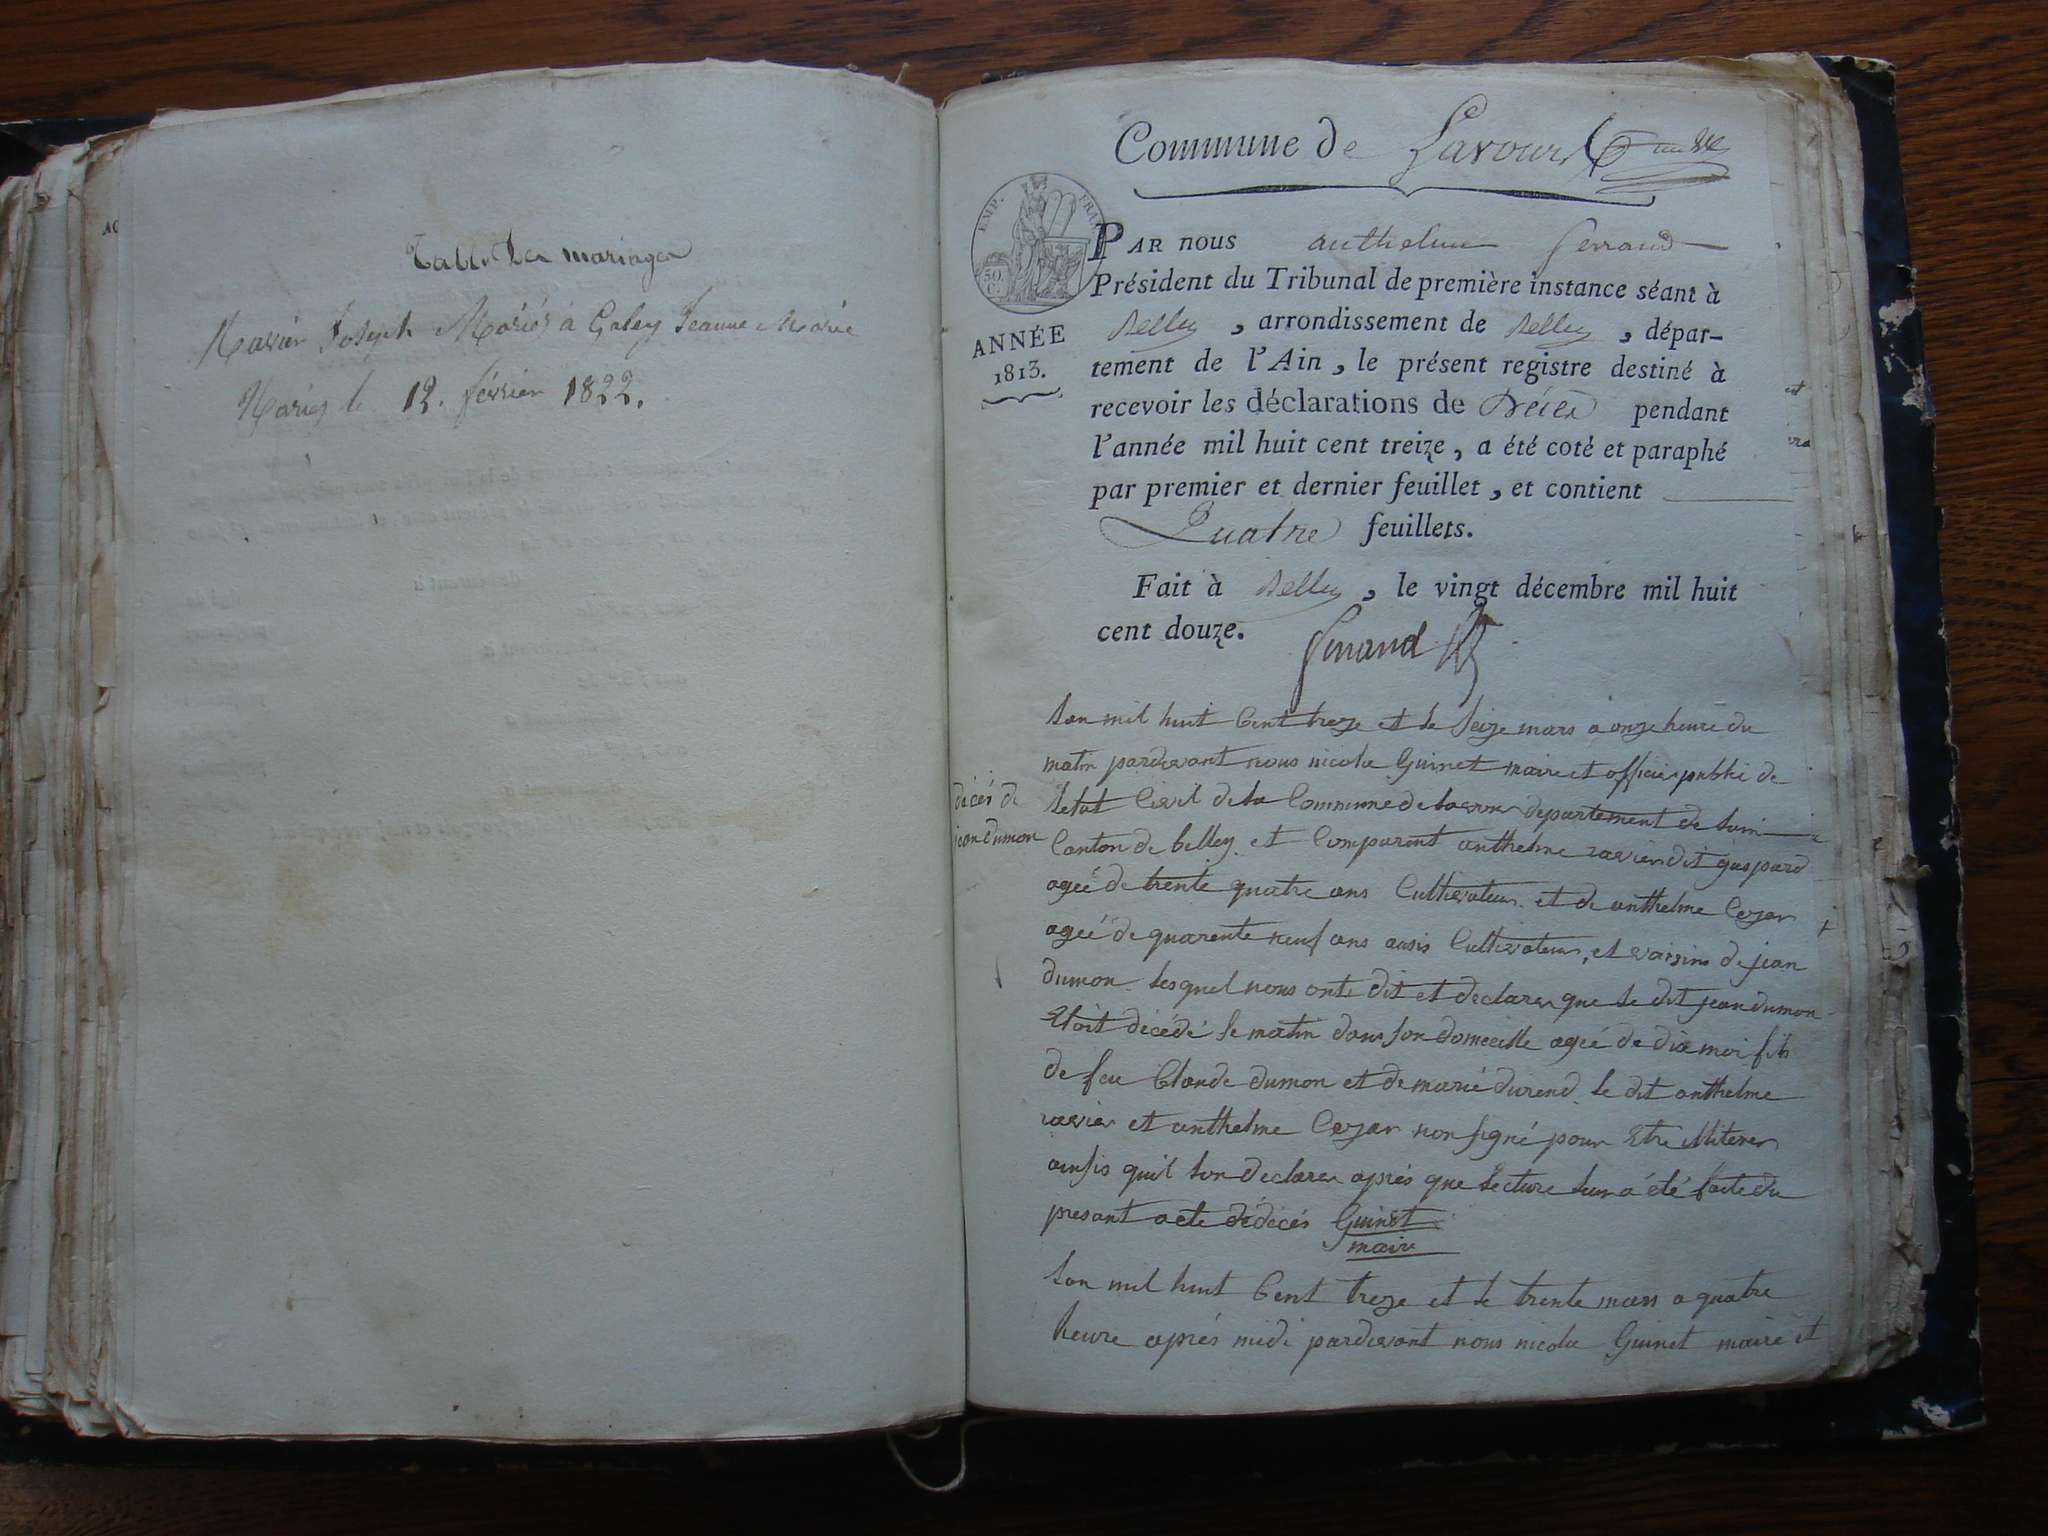 Table Des mariages
Ravier Joseph Mariés à Galey Jeanne Marie
Mariés le 12. février 1822.
Commune de Lavours
EMP. FRA
50
C.
ANNÉE
1813.
PAR nous anthelme ferrand
Président du Tribunal de première instance séant à
Belley, arrondissement de Belley, dépar-
tement de l'Ain, le présent registre destiné à
recevoir les déclarations de Décès pendant
l'année mil huit cent treize, a été coté et paraphé
par premier et dernier feuillet, et contient
Quatre feuillets.
Fait à Belley, le vingt décembre mil huit
cent douze.
ferrand
décés de
jean dumon
Lan mil huit Cent treze et le Seize mars a onze heure du
matin pardevant nous nicolas Guinet maire et officier public de
letat Civil de la Commune de lavour departement de lain
Canton de belley et Comparant anthelme ravier dit gaspard
ageé de trente quatre ans Cultivateur et de anthelme Cezar
ageé de quarente neuf ans ausis Cultivateur, et voisins de jean
dumon lesquel nous onte dit et declarer que le dit jean dumon
Etoit décédé le matin dans son domecille ageé de dix moi fils
de feu Claude dumon et de marie durend le dit anthelme
ravier et anthelme Cezar non signé pour Etre illiterer
ainsis quil lon declarer aprés que lecture leur a été faite du
presant acte dedécés Guinet
maire
Lan mil huit Cent treze et le trente mars a quatre
heure aprés midi pardevant nous nicolas Guinet maire et